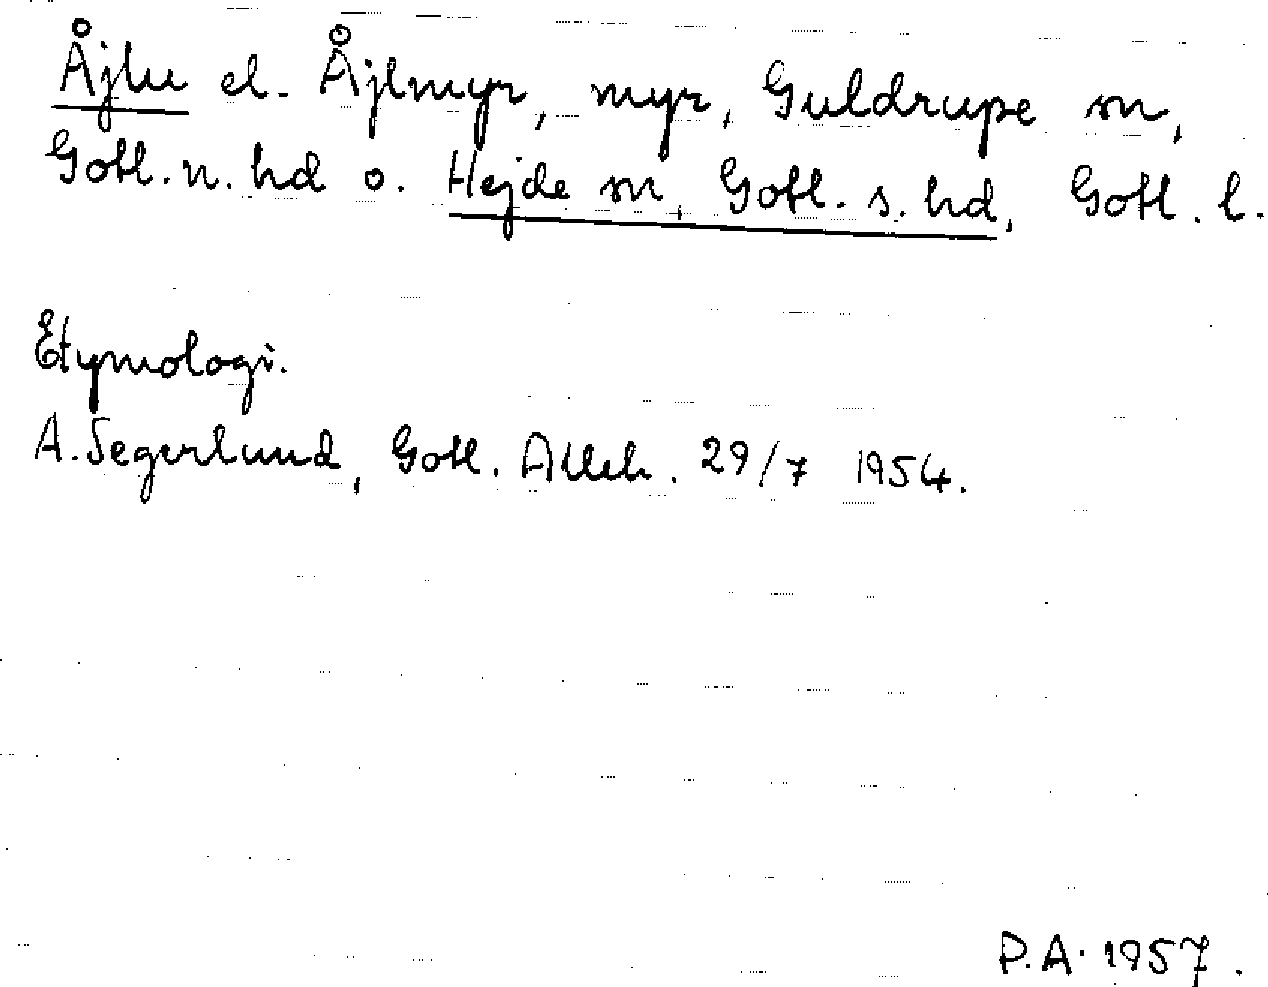 Åjlu el. Åjlmyr, myr, Guldrupe sn,
Gotl. n. hd o. Hejde sn, Gotl. s. hd, Gotl. l.
Etymologi.
A. Segerlund, Gotl. Alleh. 29/7 1954.
P.A. 1957.